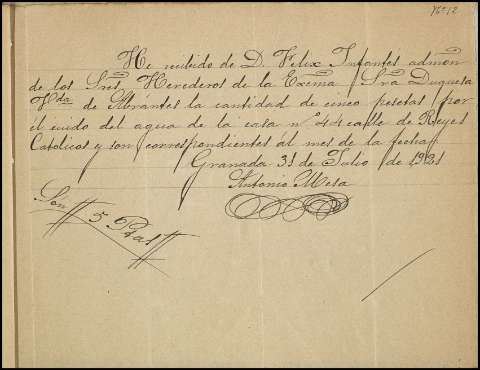 Nº 12
He recibido de D. Felix Infantes admon
de los Sres Herederos de la Excma Sra Duquesa
Vda de Abrantes la cantidad de cinco pesetas por
el cuido del agua de la casa nº 44 calle de Reyes
Catolicos y son correspondientes al mes de la fecha
Granada 31 de Julio de 1921
Antonio Mesa
Son 5 Ptas